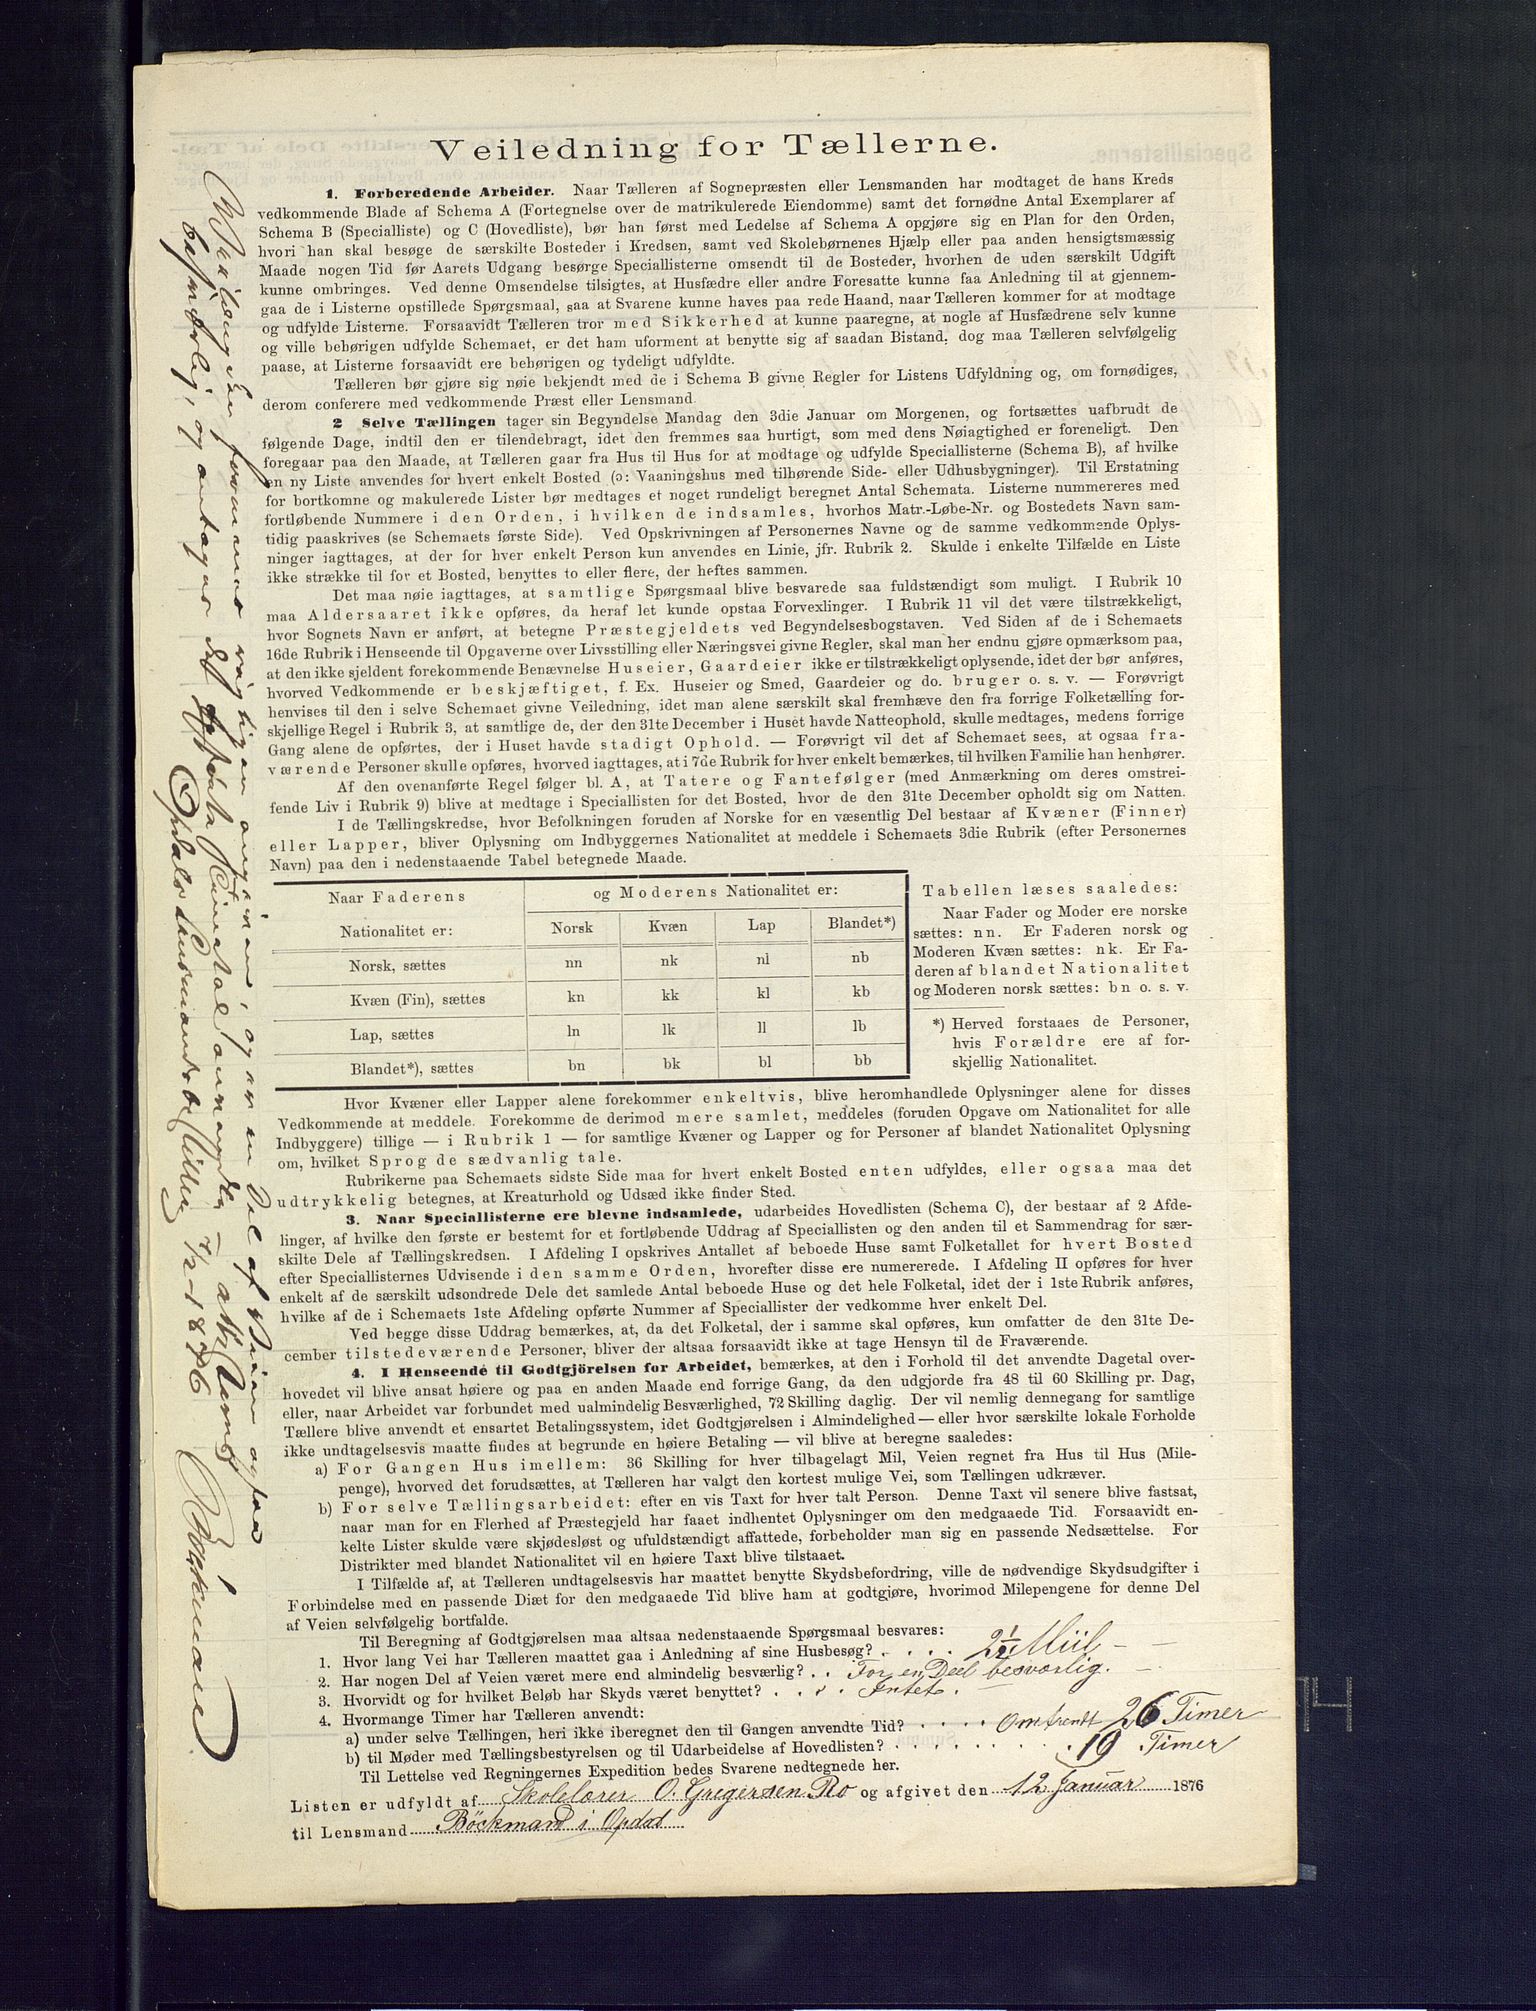 Veiledning for Tællerne.
1. Forberedende Arbeider. Naar Tælleren af Sognepræsten eller Lensmanden har modtaget de hans Kreds
vedkommende Blade af Schema A (Fortegnelse over de matrikulerede Eiendomme) samt det fornødne Antal Exemplarer af
Schema B (Specialliste) og C (Hovedliste), bør han først med Ledelse af Schema A opgjøre sig en Plan for den Orden,
hvori han skal besøge de særskilte Bosteder i Kredsen, samt ved Skolebørnenes Hjælp eller paa anden hensigtsmæssig
Maade nogen Tid før Aarets Udgang besørge Speciallisterne omsendt til de Bosteder, hvorhen de uden særskilt Udgift
kunne ombringes. Ved denne Omsendelse tilsigtes, at Husfædre eller andre Foresatte kunne faa Anledning til at gjennem-
gaa de i Listerne opstillede Spørgsmaal, saa at Svarene kunne haves paa rede Haand, naar Tælleren kommer for at modtage
og udfylde Listerne. Forsaavidt Tælleren tror med Sikkerhed at kunne paaregne, at nogle af Husfædrene selv kunne
og ville behørigen udfylde Schemaet, er det ham uforment at benytte sig af saadan Bistand, dog maa Tælleren selvfølgelig
paase, at Listerne forsaavidt ere behørigen og tydeligt udfyldte.
Tælleren bør gjøre sig nøie bekjendt med de i Schema B givne Regler for Listens Udfyldning og, om fornødiges,
derom conferere med vedkommende Præst eller Lensmand.
2 Selve Tællingen tager sin Begyndelse Mandag den 3die Januar om Morgenen, og fortsættes uafbrudt de
følgende Dage, indtil den er tilendebragt, idet den fremmes saa hurtigt, som med dens Nøiagtighed er foreneligt. Den
foregaar paa den Maade, at Tælleren gaar fra Hus til Hus for at modtage og udfylde Speciallisterne (Schema B), af hvilke
en ny Liste anvendes for hvert enkelt Bosted (ɔ: Vaaningshus med tilhørende Side- eller Udhusbygninger). Til Erstatning
for bortkomne og makulerede Lister bør medtages et noget rundeligt beregnet Antal Schemata. Listerne nummereres med
fortløbende Nummere i den Orden, i hvilken de indsamles, hvorhos Matr.-Løbe-Nr. og Bostedets Navn sam-
tidig paaskrives (se Schemaets første Side). Ved Opskrivningen af Personernes Navne og de samme vedkommende Oplys-
ninger iagttages, at der for hver enkelt Person kun anvendes en Linie, jfr. Rubrik 2. Skulde i enkelte Tilfælde en Liste
ikke strække til for et Bosted, benyttes to eller flere, der heftes sammen.
Det maa nøie iagttages, at samtlige Spørgsmaal blive besvarede saa fuldstændigt som muligt. I Rubrik 10
maa Aldersaaret ikke opføres, da heraf let kunde opstaa Forvexlinger. I Rubrik 11 vil det være tilstrækkeligt,
hvor Sognets Navn er anført, at betegne Præstegjeldets ved Begyndelsesbogstaven. Ved Siden af de i Schemaets
16de Rubrik i Henseende til Opgaverne over Livsstilling eller Næringsvei givne Regler, skal man her endnu gjøre opmærksom paa,
at den ikke sjeldent forekommende Benævnelse Huseier, Gaardeier ikke er tilstrækkeligt oplysende, idet der bør anføres,
hvorved Vedkommende er beskjæftiget, f. Ex. Huseier og Smed, Gaardeier og do. bruger o. s. v. — Forøvrigt
henvises til den i selve Schemaet givne Veiledning, idet man alene særskilt skal fremhæve den fra forrige Folketælling for-
skjellige Regel i Rubrik 3, at samtlige de, der den 31te December i Huset havde Natteophold, skulle medtages, medens forrige
Gang alene de opførtes, der i Huset havde stadigt Ophold. — Forøvrigt vil det af Schemaet sees, at ogsaa fra-
værende Personer skulle opføres, hvorved iagttages, at i 7de Rubrik for hver enkelt bemærkes, til hvilken Familie han henhører.
Af den ovenanførte Regel følger bl. A, at Tatere og Fantefølger (med Anmærkning om deres omstrei-
fende Liv i Rubrik 9) blive at medtage i Speciallisten for det Bosted, hvor de den 31te December opholdt sig om Natten.
I de Tællingskredse, hvor Befolkningen foruden af Norske for en væsentlig Del bestaar af Kvæner (Finner)
eller Lapper, bliver Oplysning om Indbyggernes Nationalitet at meddele i Schemaets 3die Rubrik (efter Personernes
Navn) paa den i nedenstaaende Tabel betegnede Maade.
Naar Faderens og Moderens Nationalitet er:
Nationalitet er: Norsk Kvæn Lap Blandet*)
Norsk, sættes nn nk nl nb
Kvæn (Fin), sættes kn kk kl kb
Lap, sættes ln lk ll lb
Blandet*), sættes bn bk bl bb
Tabellen læses saaledes:
Naar Fader og Moder ere norske
sættes: nn. Er Faderen norsk og
Moderen Kvæn sættes: nk. Er Fa-
deren af blandet Nationalitet
og Moderen norsk sættes: bn o. s. v.
*) Herved forstaaes de Personer,
hvis Forældre ere af for-
skjellig Nationalitet.
Hvor Kvæner eller Lapper alene forekommer enkeltvis, blive heromhandlede Oplysninger alene for disses
Vedkommende at meddele. Forekomme de derimod mere samlet, meddeles (foruden Opgave om Nationalitet for alle
Indbyggere) tillige — i Rubrik 1 — for samtlige Kvæner og Lapper og for Personer af blandet Nationalitet Oplysning
om, hvilket Sprog de sædvanlig tale.
Rubrikerne paa Schemaets sidste Side maa for hvert enkelt Bosted enten udfyldes, eller ogsaa maa det
udtrykkelig betegnes, at Kreaturhold og Udsæd ikke finder Sted.
3. Naar Speciallisterne ere blevne indsamlede, udarbeides Hovedlisten (Schema C), der bestaar af 2 Afde-
linger, af hvilke den første er bestemt for et fortløbende Uddrag af Speciallisten og den anden til et Sammendrag for sær-
skilte Dele af Tællingskredsen. I Afdeling I opskrives Antallet af beboede Huse samt Folketallet for hvert Bosted
efter Speciallisternes Udvisende i den samme Orden, hvorefter disse ere nummererede. I Afdeling II opføres for hver
enkelt af de særskilt udsondrede Dele det samlede Antal beboede Huse og det hele Folketal, idet der i 1ste Rubrik anføres,
hvilke af de i Schemaets 1ste Afdeling opførte Nummer af Speciallister der vedkomme hver enkelt Del.
Ved begge disse Uddrag bemærkes, at, da det Folketal, der i samme skal opføres, kun omfatter de den 31te De-
cember tilstedeværende Personer, bliver der altsaa forsaavidt ikke at tage Hensyn til de Fraværende.
4. I Henseende til Godtgjörelsen for Arbeidet, bemærkes, at den i Forhold til det anvendte Dagetal over-
hovedet vil blive ansat høiere og paa en anden Maade end forrige Gang, da den udgjorde fra 48 til 60 Skilling pr. Dag,
eller, naar Arbeidet var forbundet med ualmindelig Besværlighed, 72 Skilling daglig. Der vil nemlig dennegang for samtlige
Tællere blive anvendt et ensartet Betalingssystem, idet Godtgjørelsen i Almindelighed — eller hvor særskilte lokale Forholde
ikke undtagelsesvis maatte findes at begrunde en høiere Betaling — vil blive at beregne saaledes:
a) For Gangen Hus imellem: 36 Skilling for hver tilbagelagt Mil, Veien regnet fra Hus til Hus (Mile-
penge), hvorved det forudsættes, at Tælleren har valgt den kortest mulige Vei, som Tællingen udkræver.
b) For selve Tællingsarbeidet: efter en vis Taxt for hver talt Person. Denne Taxt vil senere blive fastsat,
naar man for en Flerhed af Præstegjeld har faaet indhentet Oplysninger om den medgaaede Tid. Forsaavidt en-
kelte Lister skulde være skjødesløst og ufuldstændigt affattede, forbeholder man sig en passende Nedsættelse. For
Distrikter med blandet Nationalitet vil en høiere Taxt blive tilstaaet.
I Tilfælde af, at Tælleren undtagelsesvis har maattet benytte Skydsbefordring, ville de nødvendige Skydsudgifter i
Forbindelse med en passende Diæt for den medgaaede Tid blive ham at godtgjøre, hvorimod Milepengene for denne Del
af Veien selvfølgelig bortfalde.
Til Beregning af Godtgjørelsen maa altsaa nedenstaaende Spørgsmaal besvares:
1. Hvor lang Vei har Tælleren maattet gaa i Anledning af sine Husbesøg? . . . . 2½ Miil - -
2. Har nogen Del af Veien været mere end almindelig besværlig? . . For en Deel besværlig. -
3. Hvorvidt og for hvilket Beløb har Skyds været benyttet? . . . . Intet. -
4. Hvormange Timer har Tælleren anvendt:
a) under selve Tællingen, heri ikke iberegnet den til Gangen anvendte Tid? . . . . Omtrendt 26 Timer
b) til Møder med Tællingsbestyrelsen og til Udarbeidelse af Hovedlisten? . . . . . . . . . 19 Timer
Til Lettelse ved Regningernes Expedition bedes Svarene nedtegnede her.
Listen er udfyldt af Skolelærer O. Gregersen Ro og afgivet den 12 Januar 1876
til Lensmand Böckmand i Opdal
Veilængden formenes rigtigen angiven, og er en Del af Veien ogsaa
besværlig, og antages det opførte Timetal
Opdals Lensmandsbestilling 7/2-1876 Böckman